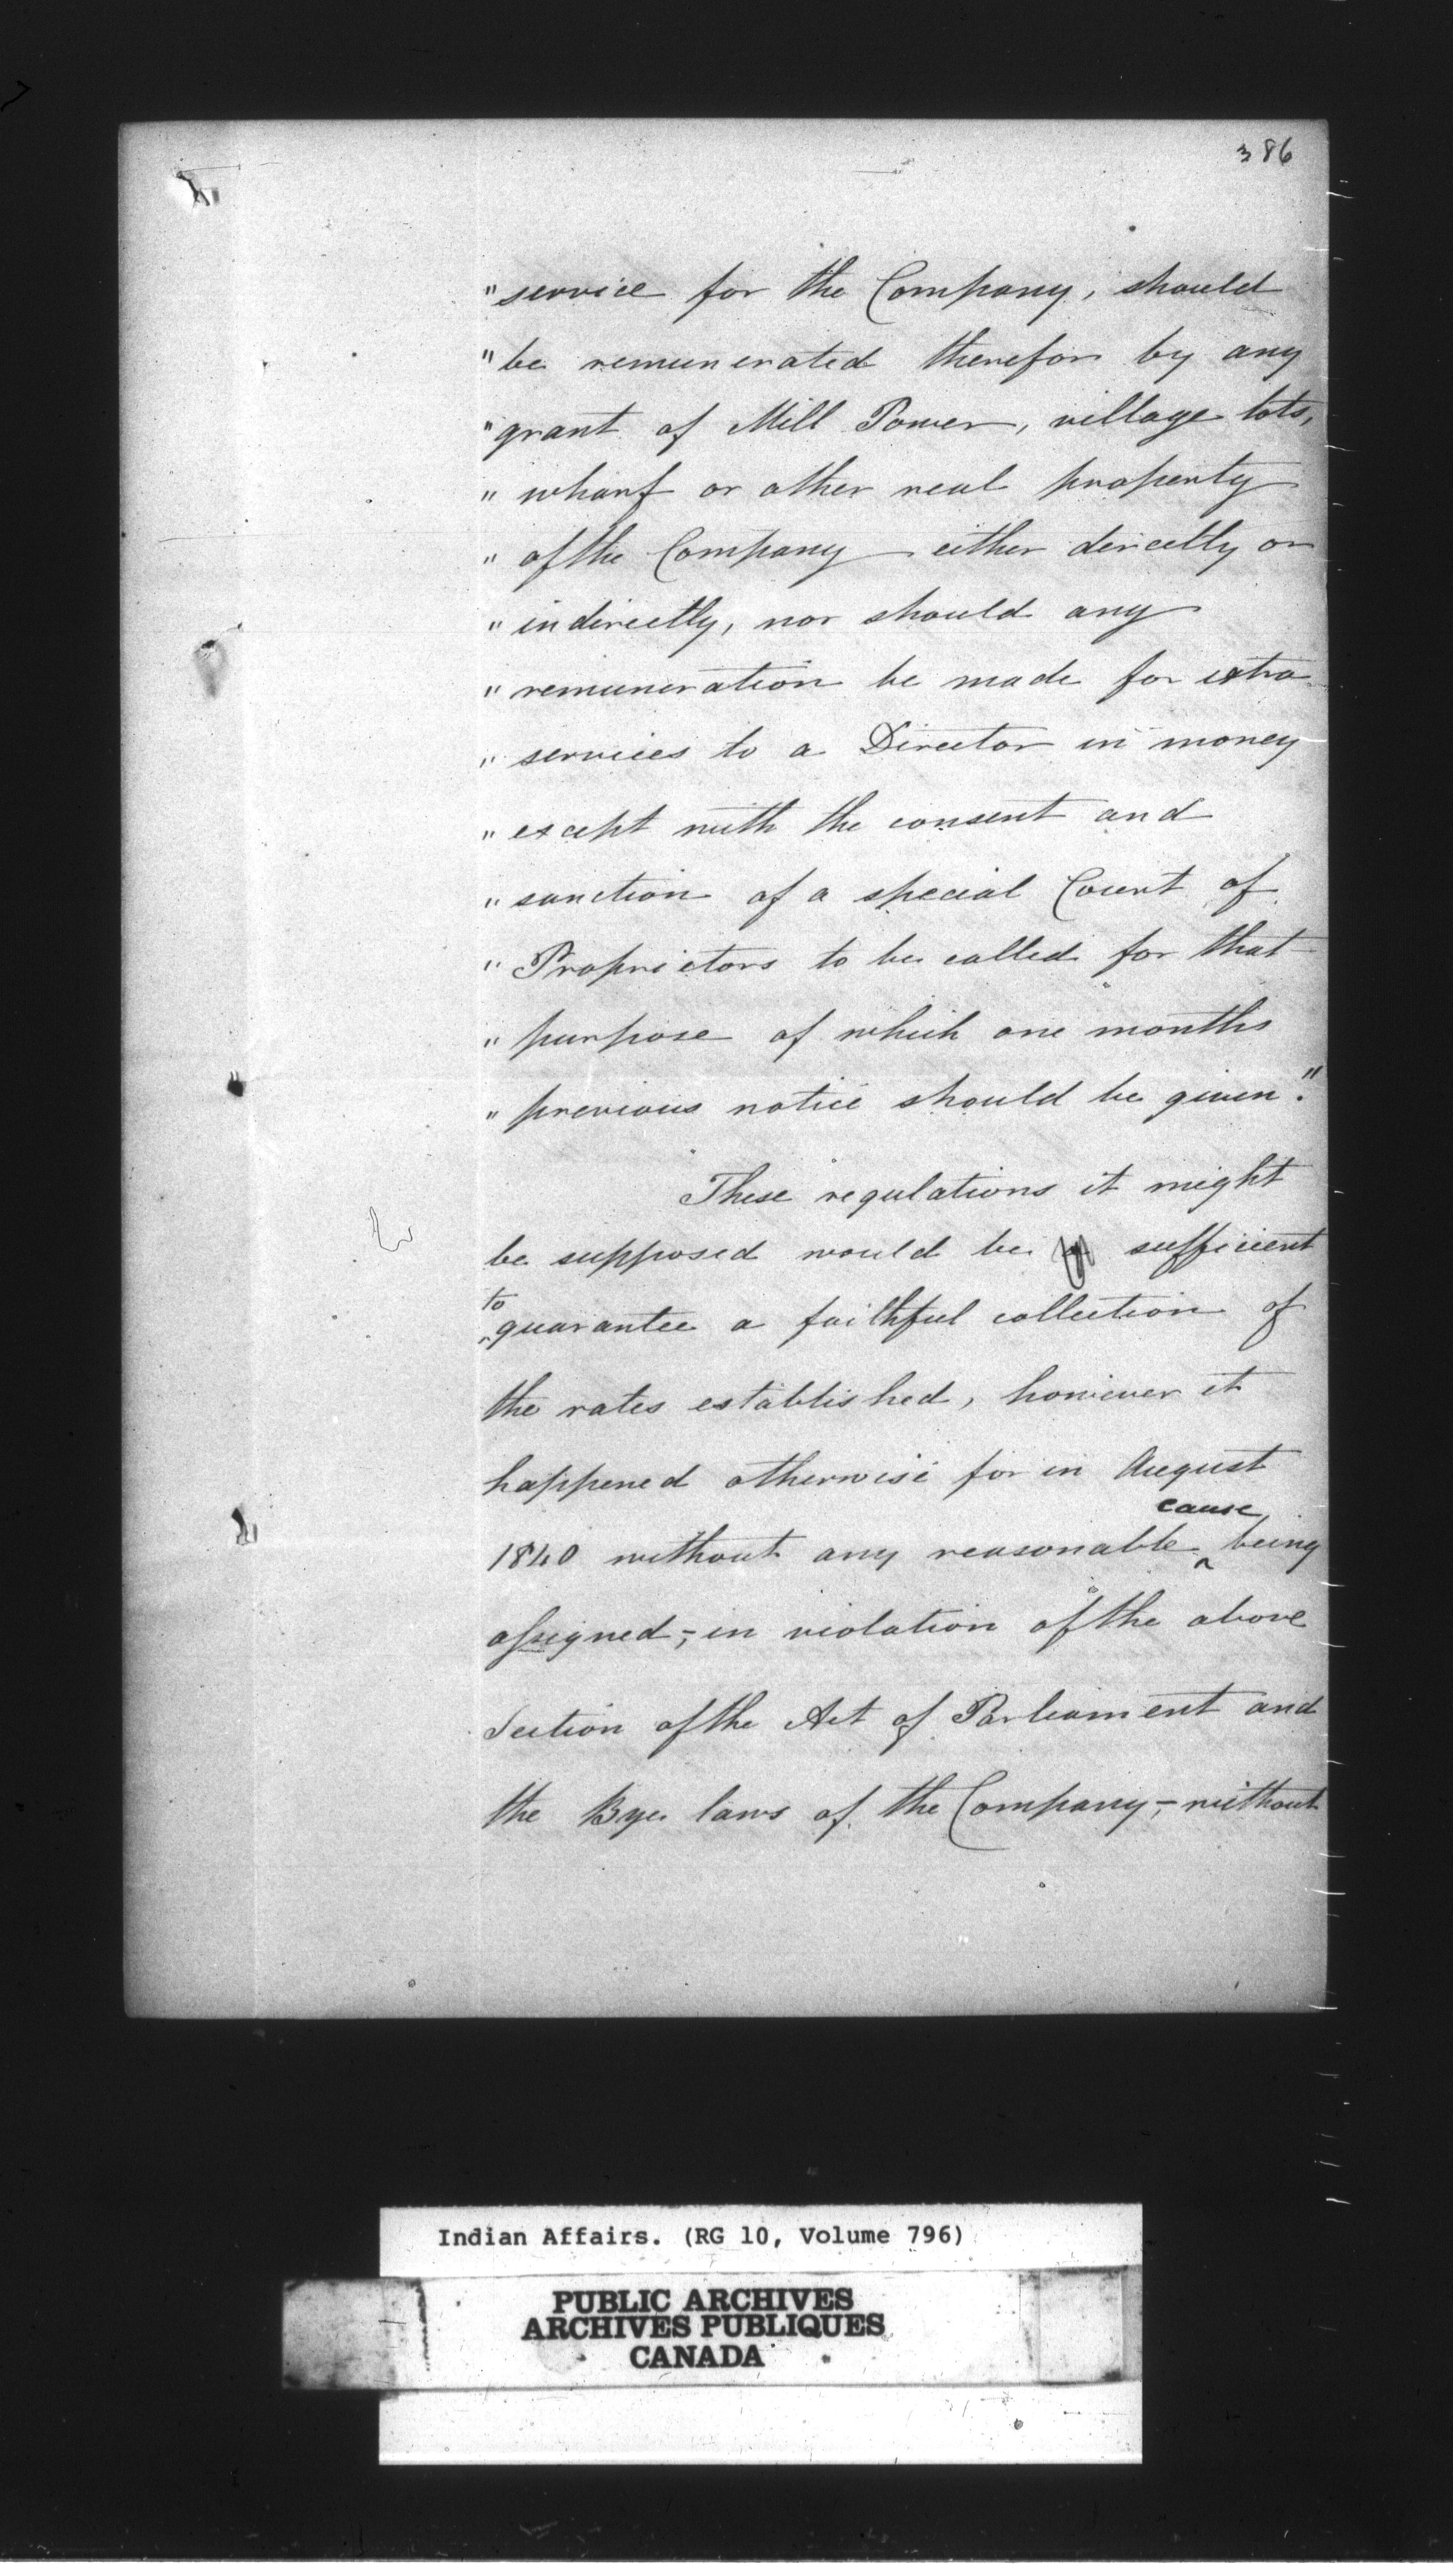 386
"service for the Company, should
"be remunerated therefor by any
"grant of Mill Power, village lots,
"wharf or other real property
"of the Company either directly or
"indirectly, nor should any
"remuneration be made for extra
"services to a Director in money
"except with the consent and
"sanction of a special Court of
"Proprietors to be called for that
"purpose of which one months
"previous notice should be given."
These regulations it might
be supposed would be sufficient
to
guarantee a faithful collection of
the rates established, however it
happened otherwise for in August
cause
1840 without any reasonable ^ being
assigned;- in violation of the above
Section of the Act of Parliament and
the Bye laws of the Company;- without
Indian Affairs. (RG 10, Volume 796)
PUBLIC ARCHIVES
ARCHIVES PUBLIQUES
CANADA